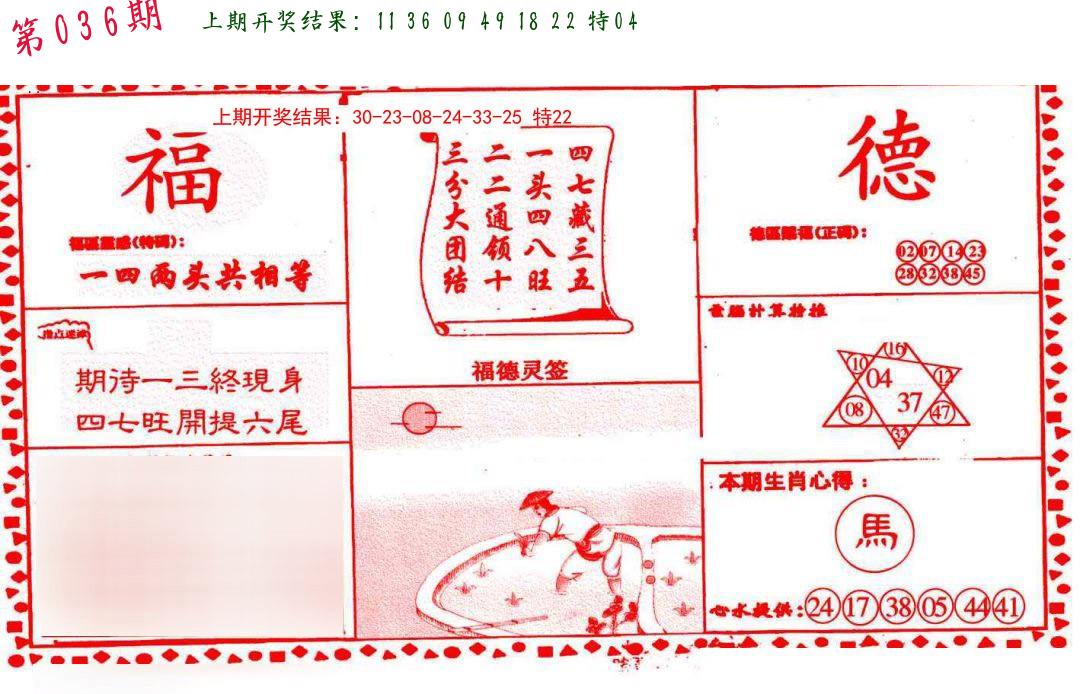 第036期
上期开奖结果：11 36 09 49 18 22 特04
上期开奖结果：30-23-08-24-33-25 特22
福
福區靈感(特碼)：
一四两头共相等
指点迷津
期待一三終現身
四七旺開提六尾
四七藏三五
一头四八旺
二二通领十
三分大团结
福德灵签
德
德區賜福(正碼)：
02 07 14 23
28 32 38 45
電腦計算粉推
16
10
12
04
37
08
47
32
本期生肖心得：
馬
心水提供：24 17 38 05 44 41